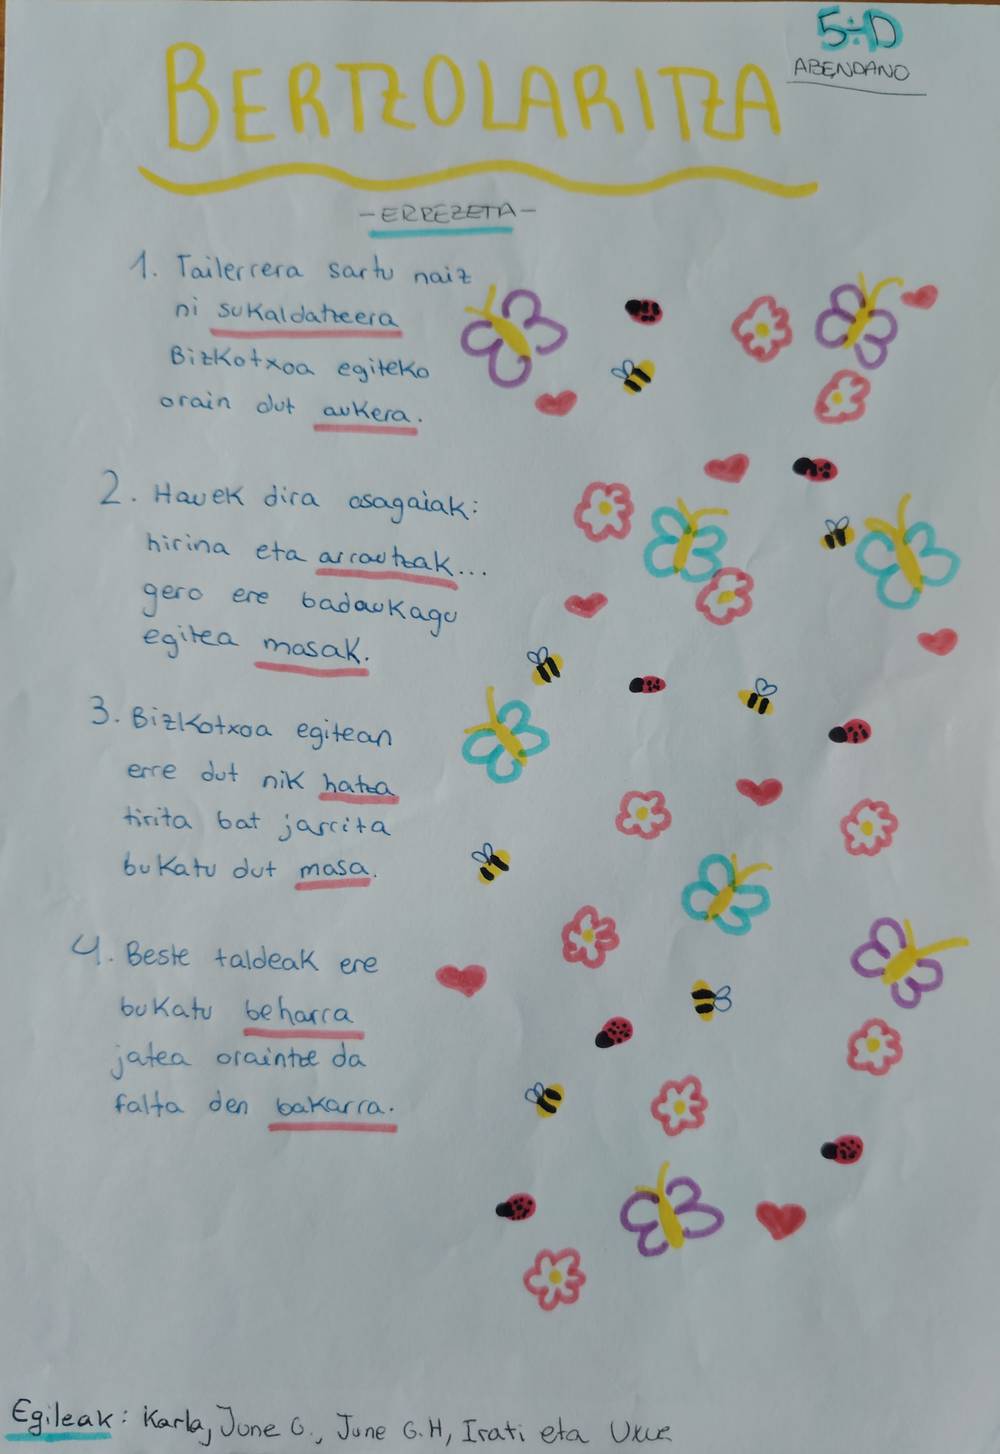 5.D
ABENDAÑO
BERTZOLARITZA
-ERREZETA-
1. Tailerrera sartu naiz
ni sukaldatzeera
Bizkotxoa egiteko
orain dut aukera.
2. Hauek dira osagaiak:
hirina eta arrautzak...
gero ere badaukagu
egitea masak.
3. Bizkotxoa egitean
erre dut nik hatza
tirita bat jarrita
bukatu dut masa.
4. Beste taldeak ere
bukatu beharra
jatea oraintze da
falta den bakarra.
Egileak: Karla, June G., June G.H, Irati eta Uxue